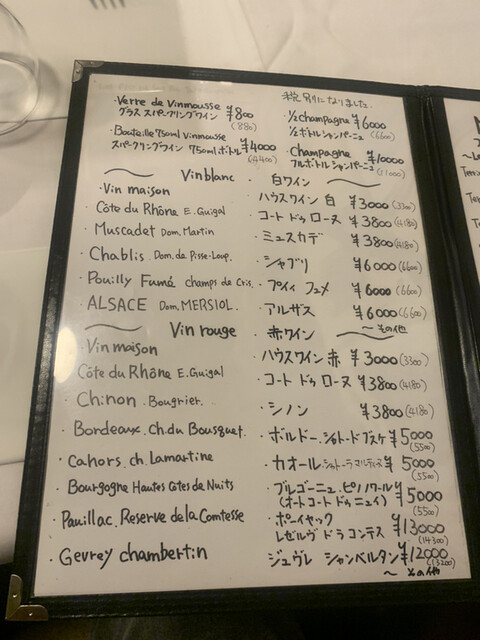 税別になりました.
・Verre de Vinmousse ¥800
グラス スパークリングワイン (880)
・½champagne ¥6000
½ボトルシャンパーニュ (6600)
・Bouteille 750ml Vinmousse ¥4000
スパークリングワイン 750ml ボトル (4400)
・Champagne ¥10000
フルボトルシャンパーニュ (11000)
Vinblanc ・白ワイン
・Vin maison ・ハウスワイン 白 ¥3000 (3300)
Côte du Rhône E. Guigal ・コート ドゥ ローヌ ¥3800 (4180)
・Muscadet Dom. Martin ・ミュスカデ ¥3800 (4180)
・Chablis. Dom. de Pisse-Loup. ・シャブリ ¥6000 (6600)
・Pouilly Fumé champs de Cris. ・プイィ フュメ ¥6000 (6600)
・ALSACE Dom. MERSIOL. ・アルザス ¥6000 (6600)
〜 その他
Vin rouge ・赤ワイン
・Vin maison ・ハウスワイン 赤 ¥3000 (3300)
Côte du Rhône E. Guigal ・コート ドゥ ローヌ ¥3800 (4180)
・Chinon. Bougrier. ・シノン ¥3800 (4180)
・Bordeaux. Ch. du Bousquet. ・ボルドー. シャトー. ド ブスケ ¥5000 (5500)
・Cahors. ch. Lamartine ・カオール シャトー ラ マルティーヌ ¥5000 (5500)
・Bourgogne Hautes Côtes de Nuits ・ブルゴーニュ・ピノノワール ¥5000
(オート コート ドゥ ニュイ) (5500)
・Pauillac. Reserve de la Comtesse ・ポーイヤック ¥13000
レゼルヴ ド ラ コンテス (14300)
・Gevrey chambertin ・ジュヴレ シャンベルタン ¥12000 (13200)
〜 その他